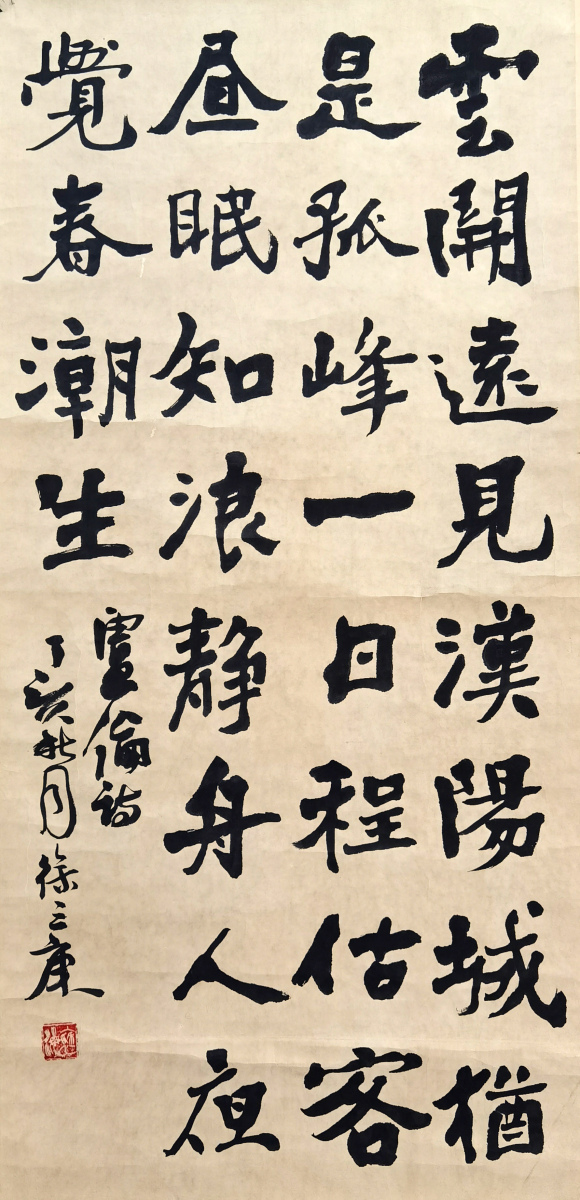 雲開遠見漢陽城猶
是孤峰一日程估客
昼眠知浪静舟人夜
覺春潮生
盧倫詩
丁亥秋月徐三庚